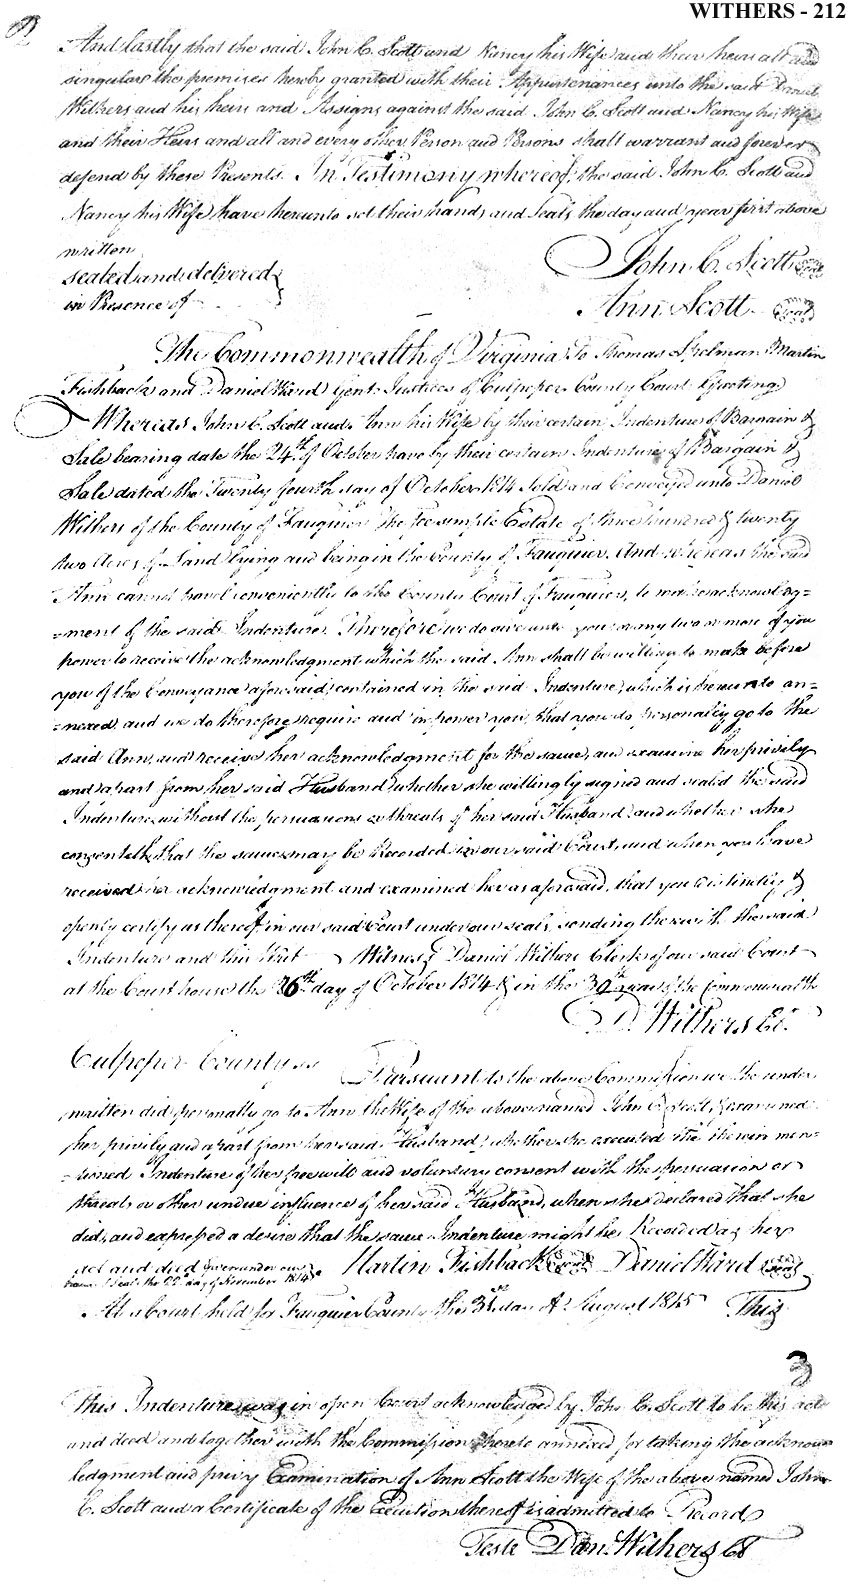 WITHERS - 212
2
And lastly that the said John C. Scott and Nancy his Wife and their heirs all and
singular the premises hereby granted with their Appurtenances unto the said Daniel
Withers and his heirs and Assigns against the said John C. Scott and Nancy his Wife
and their Heirs and all and every other Person and Persons shall warrant and forever
defend by these Presents. In Testimony whereof, the said John C. Scott and
Nancy his Wife have hereunto set their hands and Seals the day and year first above
written
sealed and delivered
in Presence of
John C. Scott Seal
Ann Scott Seal
The Commonwealth of Virginia To Thomas Spelman Martin
Fishback and Daniel Ward Gent. Justices of Culpeper County Court Greeting
Whereas John C. Scott and Ann his Wife by their certain Indenture of Bargain &
Sale bearing date the 24th of October have by their certain Indenture of Bargain &
Sale dated the Twenty fourth day of October 1814 Sold and Conveyed unto Daniel
Withers of the County of Fauquier the fee simple Estate of three hundred & twenty
two Acres of Land lying and being in the County of Fauquier. And whereas the said
Ann cannot travel conveniently to the County Court of Fauquier, to make acknowledg=
=ment of the said Indenture. Therefore we do give unto you or any two or more of you
power to receive the acknowledgment which the said Ann shall be willing to make before
you of the Conveyance aforesaid contained in the said Indenture which is hereunto an=
=nexed and we do therefore require and impower you, that you do personally go to the
said Ann, and receive her acknowledgment for the same, and examine her privily
and apart from her said Husband whether she willingly signed and sealed the said
Indenture without the persuasions or threats of her said Husband and whether she
consenteth that the same may be Recorded in our said Court, and when you have
received her acknowledgment and examined her as aforesaid, that you distinctly &
openly certify us thereof in our said Court under our seals, sending therewith the said
Indenture and this Writ Witness Daniel Withers Clerk of our said Court
at the Court house the 26th day of October 1814 & in the 39th year of the Commonwealth
D. Withers Ct.
Culpeper County ss Pursuant to the above Commission we the under
written did personally go to Ann the Wife of the above named John C. Scott, & examined
her privily and apart from her said Husband whether she executed the therein men=
=tioned Indenture of her free will and voluntary consent with the persuasion or
threats or other undue influence of her said Husband, when she declared that she
did, and expressed a desire that the same Indenture might be Recorded as her
act and deed Given under our
hands & Seals the 22d day of November 1814. Martin Fishback Seal Daniel Ward Seal
At a Court held for Fauquier County the 31st day of August 1815 This
3
This Indenture was in open Court acknowledged by John C. Scott to be his act
and deed and together with the Commission thereto annexed for taking the acknow
ledgment and privy Examination of Ann Scott the Wife of the above named John
C. Scott and a Certificate of the Execution thereof is admitted to Record
Teste Dan. Withers Ct